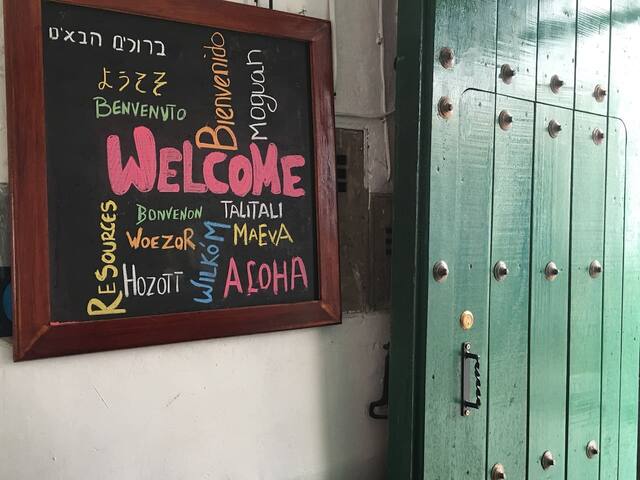 ברולים הבאים
ようこそ
BENVENUTO
Bienvenido
Moguan
WELCOME
BONVENON
TALITALI
WOEZOR
WILKÓM
MAEVA
RESOURCES
HOZOTT
ALOHA